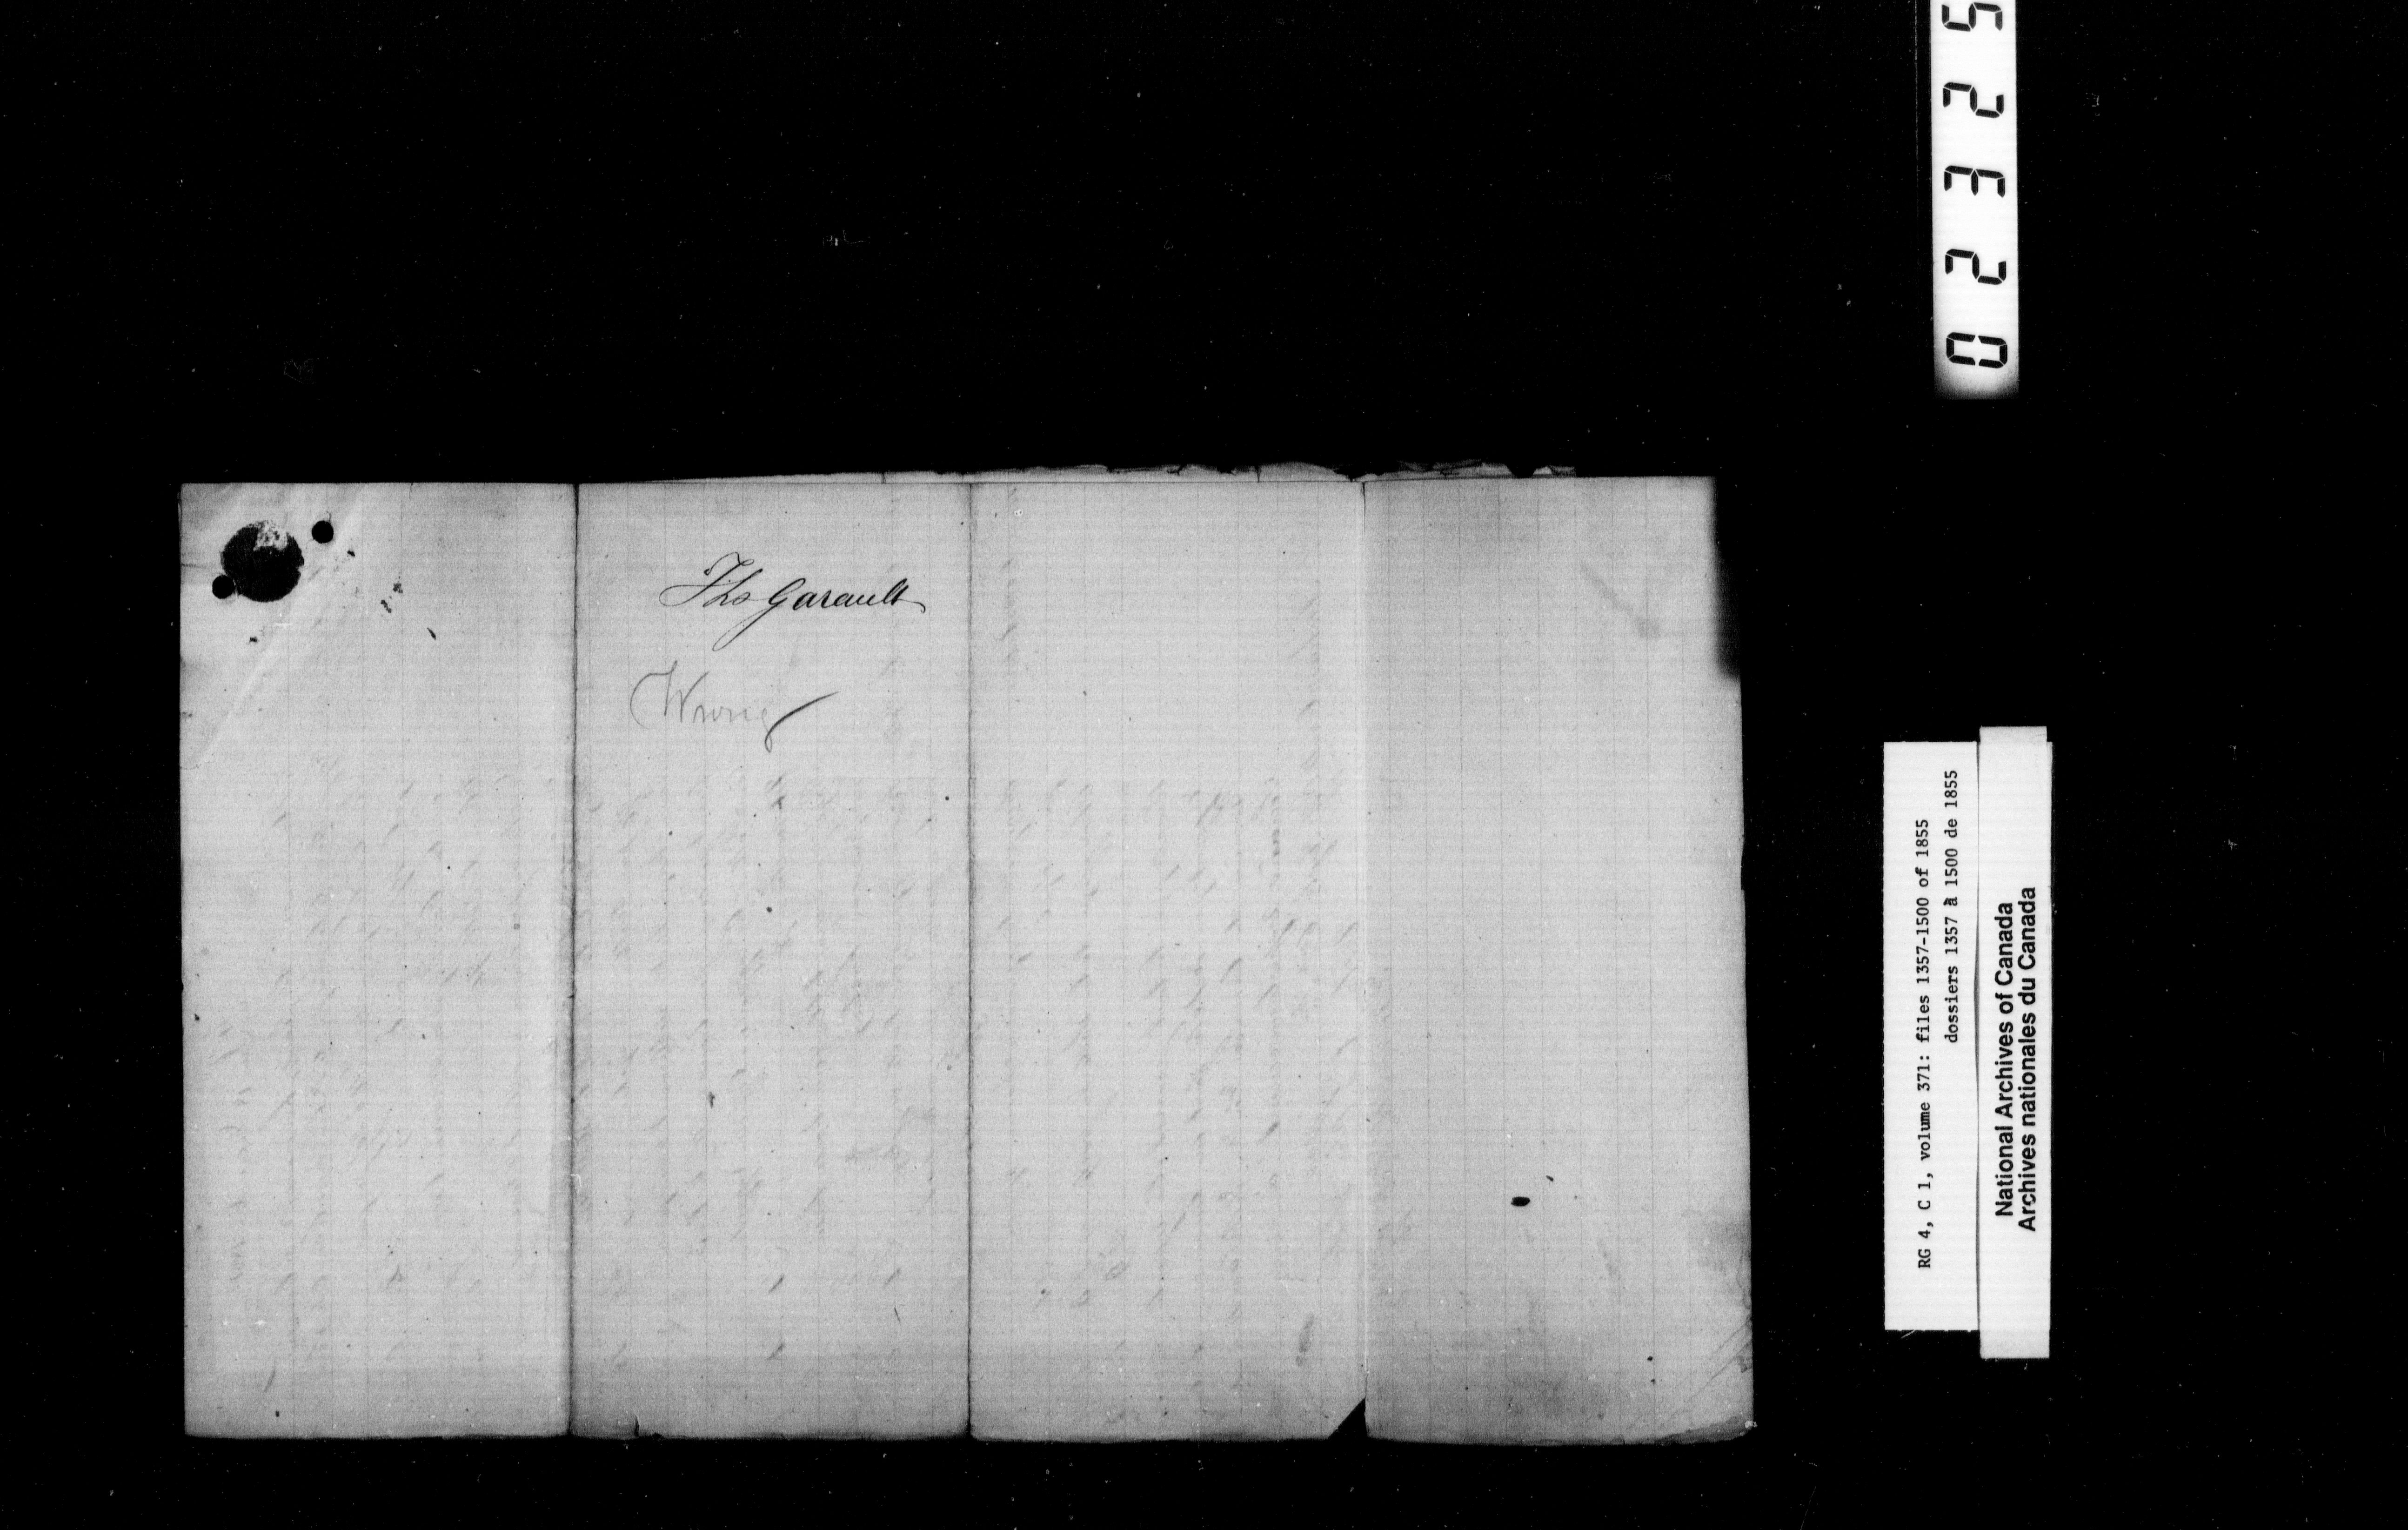 Tho Garault
Wrong
02325
RG 4, C 1, volume 371: files 1357-1500 of 1855
dossiers 1357 à 1500 de 1855
National Archives of Canada
Archives nationales du Canada